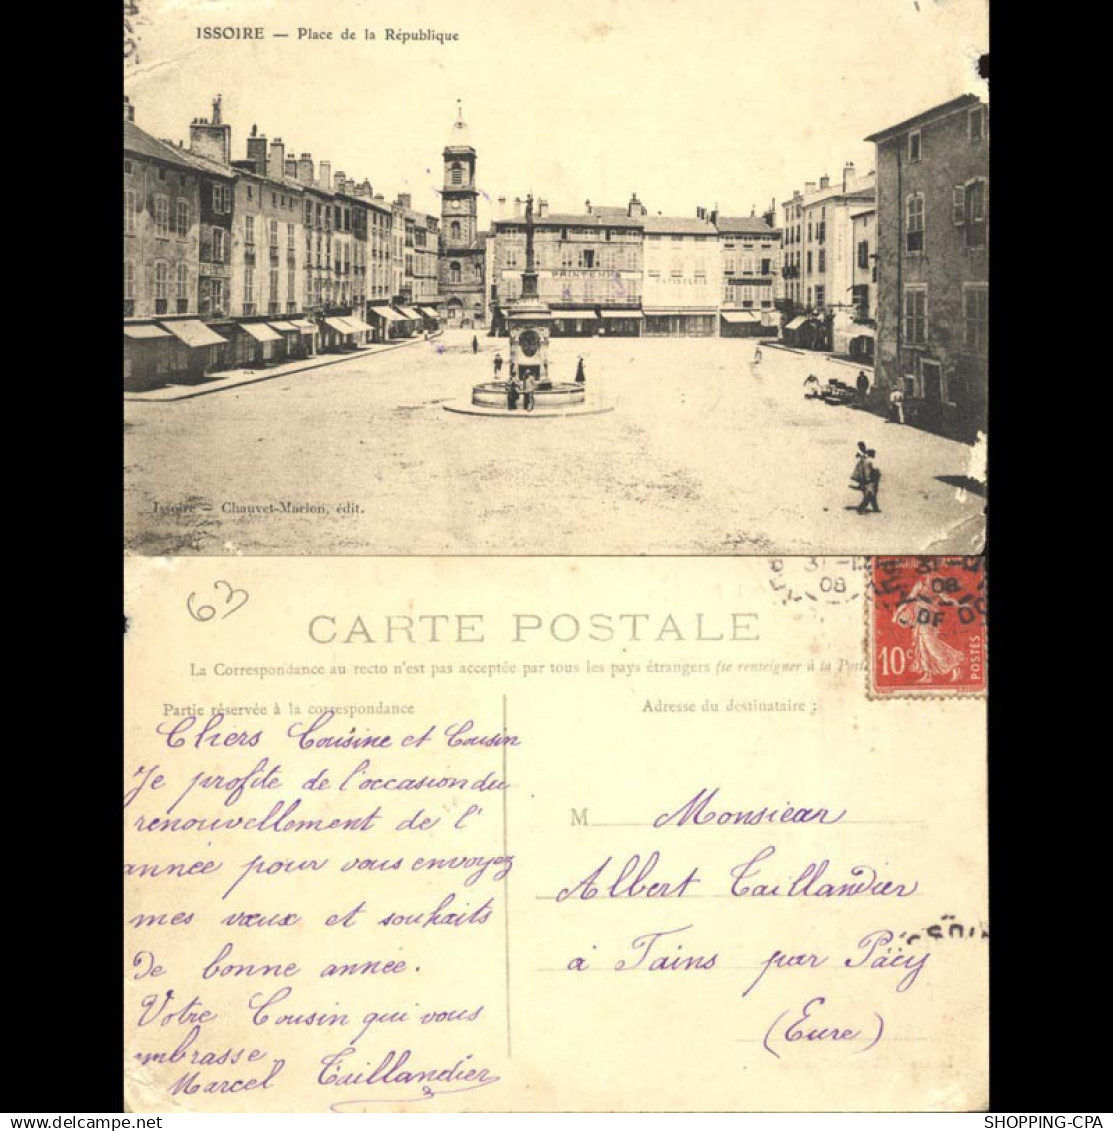 ISSOIRE — Place de la République
PRINTEMPS
Issoire — Chauvet-Marion, édit.
63
31
08
31
08
DE DO
CARTE POSTALE
La Correspondance au recto n'est pas acceptée par tous les pays étrangers (se renseigner à la Post
10c POSTES
Partie réservée à la correspondance
Adresse du destinataire :
Chers Cousine et Cousin
Je profite de l'occasion du
renouvellement de l'
année pour vous envoyez
mes vœux et souhaits
De bonne année.
Votre Cousin qui vous
embrasse
Marcel Taillandier
M Monsieur
Albert Taillandier
à Tains par Pacy
(Eure)
SHOPPING-CPA